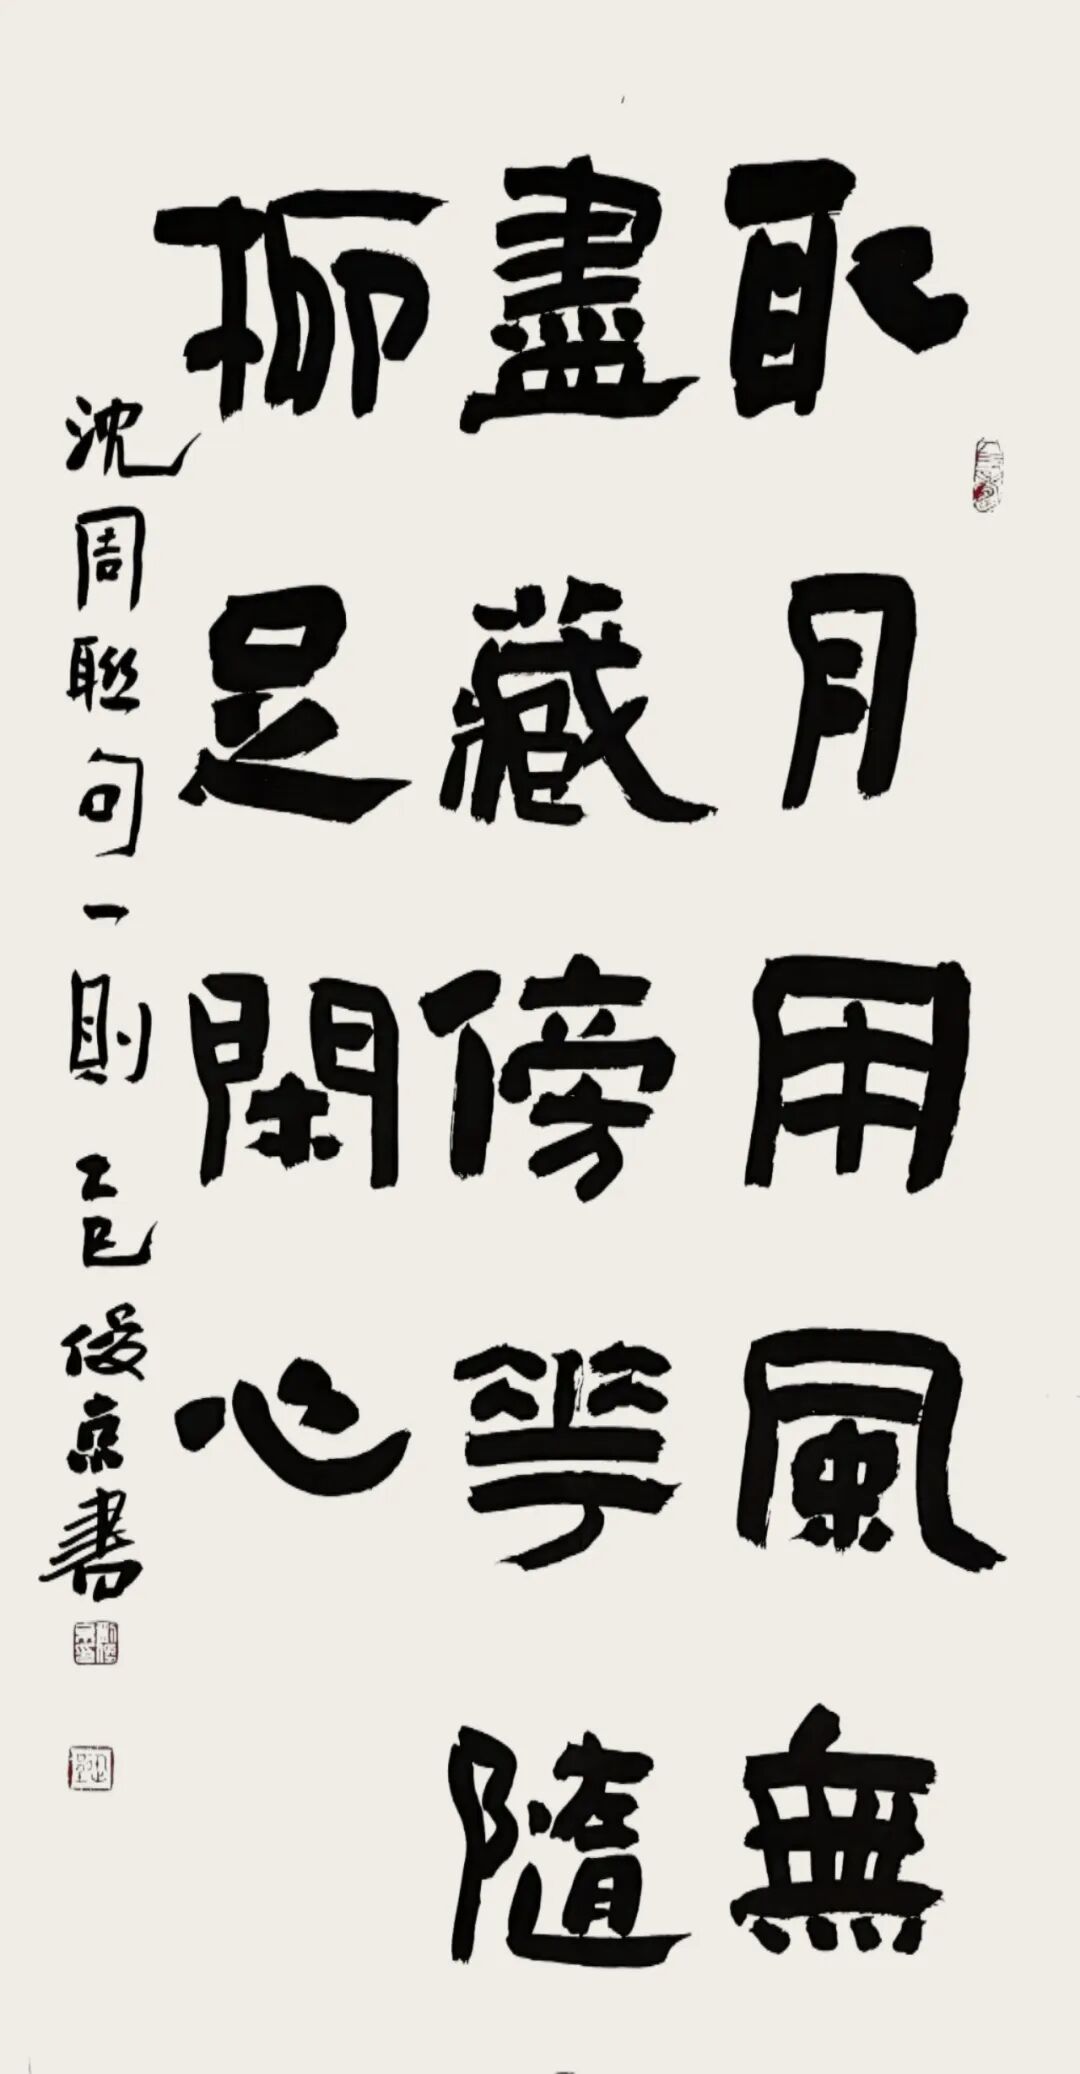 取月用風無
盡藏傍華隨
柳足閑心
沈周聯句一則 乙巳 俊京書